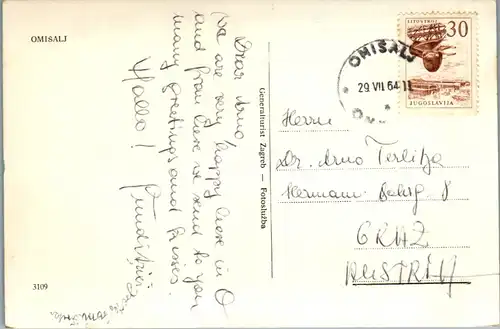 OMIŠALJ
Dear Arno,
We are very happy here in O
and from here we send to you
many greetings and kisses.
Hallo!
3109
Generalturist Zagreb — Fotoslužba
LITOSTROJ
30
JUGOSLAVIJA
OMIŠALJ
29 VII 64 11
Herrn
Dr. Arno Terlitza
Hermann 8
GRAZ
AUSTRIJA